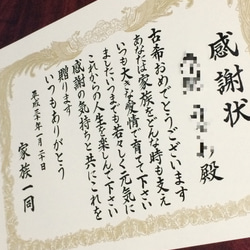 感謝状
殿
古希おめでとうございます
あなたは家族をどんな時も支え
いつも大きな愛情で育てて下さい
ましたいつまでも若々しく元気に
これからの人生を楽しんで下さい
感謝の気持ちと共にこれを
贈ります
いつもありがとう
平成二十年八月二十日
家族一同